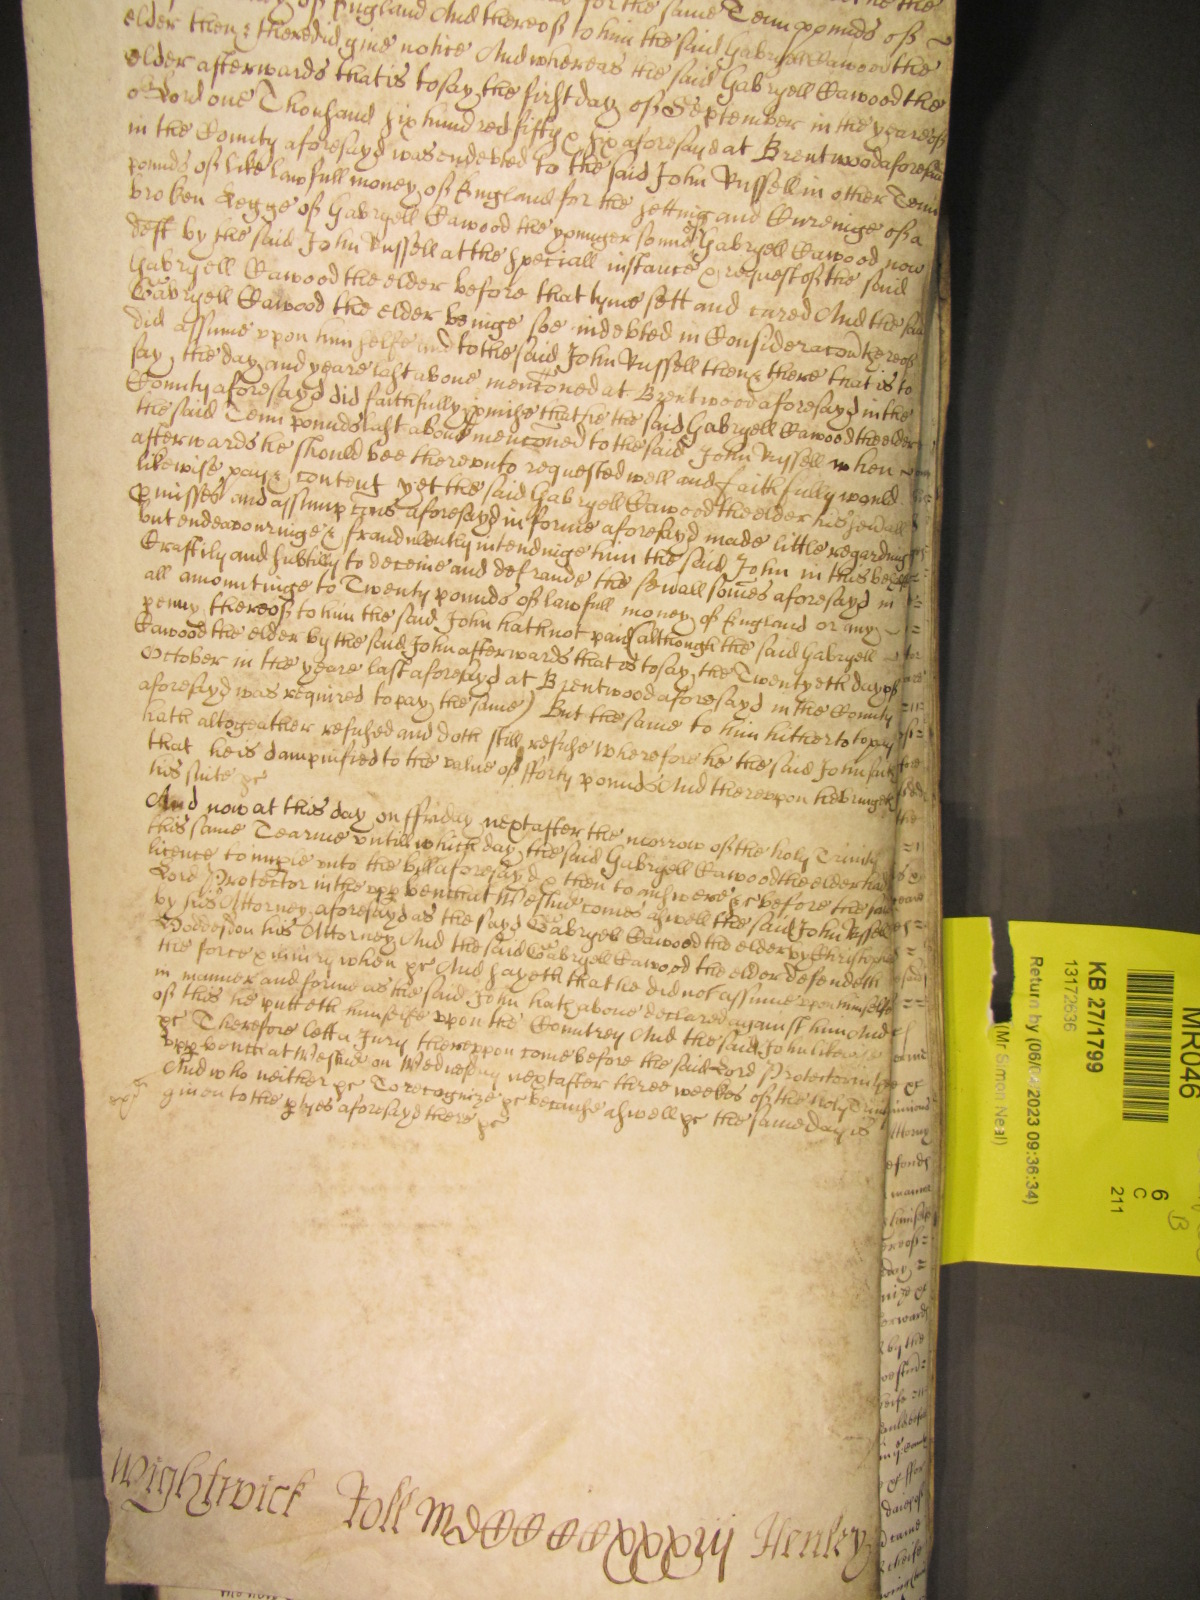 of England And thereof to him the said Gabryell Cawood the
elder then & there did give notice And whereas the said Gabryell Cawood the
elder afterwards that is to say the first day of September in the yeare of
o Lord one Thousand six hundred fifty & six aforesayd at Brentwood aforesaid
in the County aforesayd was endebted to the said John Russell in other Tenn
pounds of like lawfull money of England for the setting and Cureinge of a
broken Legge of Gabryell Cawood the younger sonne of Gabryell Cawood now
deft by the said John Russell at the speciall instance & request of the said
Gabryell Cawood the elder before that tyme sett and cured And the said
Gabryell Cawood the elder beinge soe indebted in Consideracon thereof
did assume upon him selfe and to the said John Russell then & there that is to
say the day and yeare last above menconed at Brentwood aforesayd in the
County aforesayd did faithfully pmise that he the said Gabryell Cawood the elder
the said Tenn pounds last above menconed to the said John Russell when
afterwards he should bee thereunto requested well and faithfully would
likewise pay & content yet the said Gabryell Cawood the elder his sevall
pmisses and assumpcons aforesayd in forme aforesayd made little regarding
but endeavouringe & fraudulently intendinge him the said John in this behalfe
Craftily and subtilly to deceive and defraude the sevall somes aforesayd in
all amountinge to Twenty pounds of lawfull money of England or any
penny thereof to him the said John hath not paid (although the said Gabryell
Cawood the elder by the said John afterwards that is to say the Twentyeth day of
October in the yeare last aforesayd at Brentwood aforesayd in the County
aforesayd was required to pay the same) But the same to him hitherto to pay
hath altogeather refused and doth still refuse Wherefore he the said John saith
that he is dampnified to the value of fforty pounds And thereupon he bringeth
his suite &c
And now at this day on ffriday next after the morrow of the holy Trinity
this same Tearme untill which day the said Gabryell Cawood the elder had
licence to imple unto the bill aforesayd & then to answere &c before the said
Lord Protector in the upp bench at Westm comes aswell the said John Russell
by his Attorney aforesayd as the sayd Gabryell Cawood the elder by Christopher
Doddesdon his Attorney And the said Gabryell Cawood the elder defendeth
the force & iniury when &c And sayeth that he did not assume upon himselfe
in manner and forme as the said John hath above declared against him And
of this he putteth himselfe upon the Countrey And the said John likewise
&c Therefore lett a Jury thereuppon come before the said Lord Protector in the
upp bench at Westm on Wednesday next after three weekes of the holy Trinity
And who neither &c To recognize &c because aswell &c the same day is
given to the ptyes aforesayd there &c
Wightwick Roll MDCCCCCxxxiij Henley
MR046
KB 27/1799
13172636
Return by (06/0 2023 09:36:34)
(Mr Simon Neal)
6
C
211
B